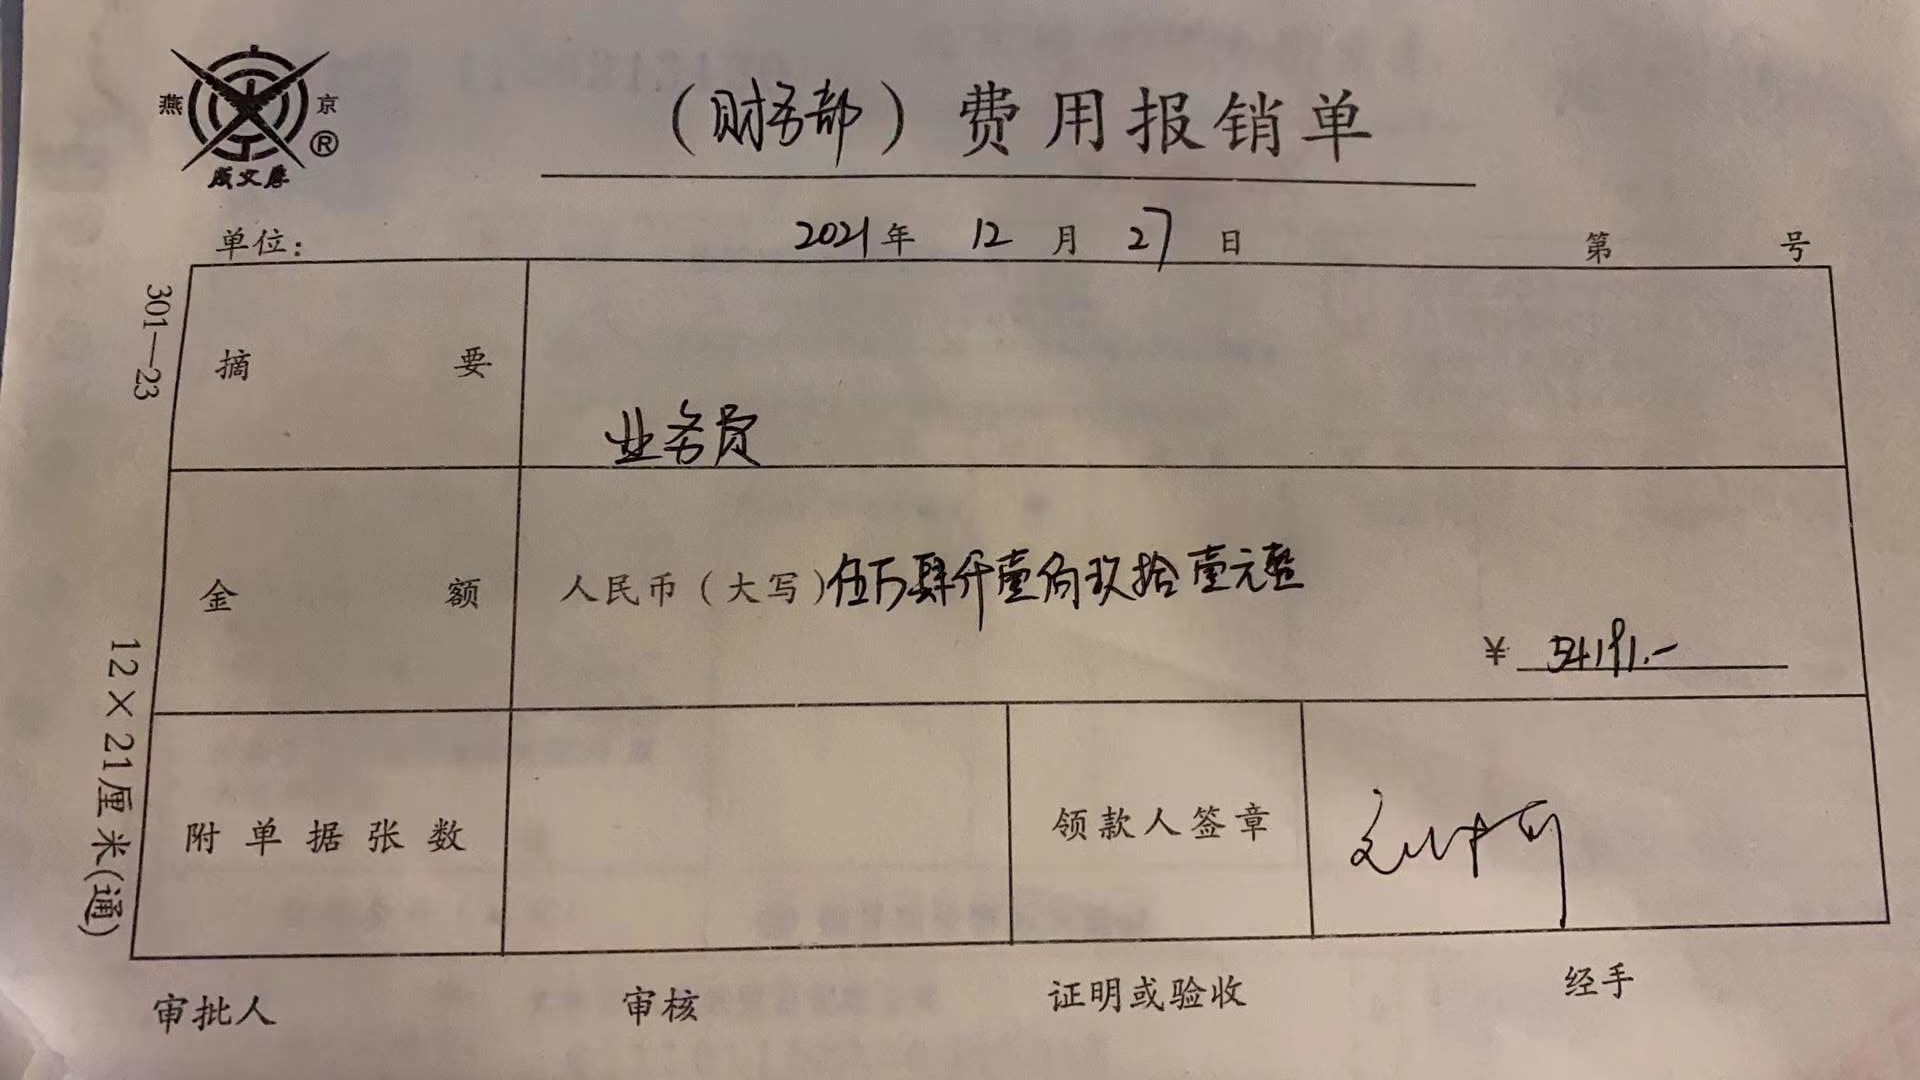 燕 京
®
成文厚
（财务部）费用报销单
单位： 2021年 12 月 27 日 第 号
301—23
12×21厘米(通)
摘 要 业务员
金 额 人民币（大写）伍万肆仟壹佰玖拾壹元整
￥ 54191.-
附单据张数 领款人签章
审批人 审核 证明或验收 经手